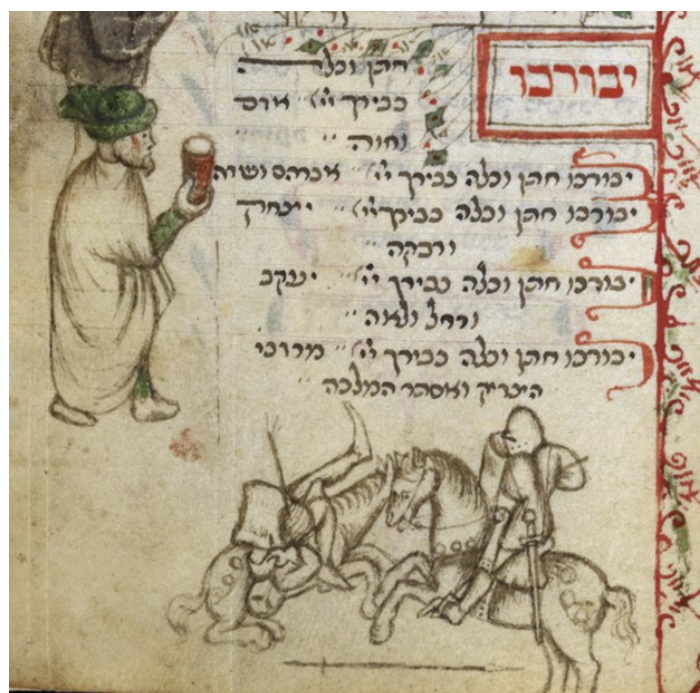 יבורכו
חתן וכלה
כבירך ייי אדם
וחוה
יבורכו חתן וכלה כבירך ייי אברהם ושרה
יבורכו חתן וכלה כבירך ייי יצחק
ורבקה
יבורכו חתן וכלה כבירך ייי יעקב
ורחל ולאה
יבורכו חתן וכלה כבירך ייי מרדכי
הצדיק ואסתר המלכה